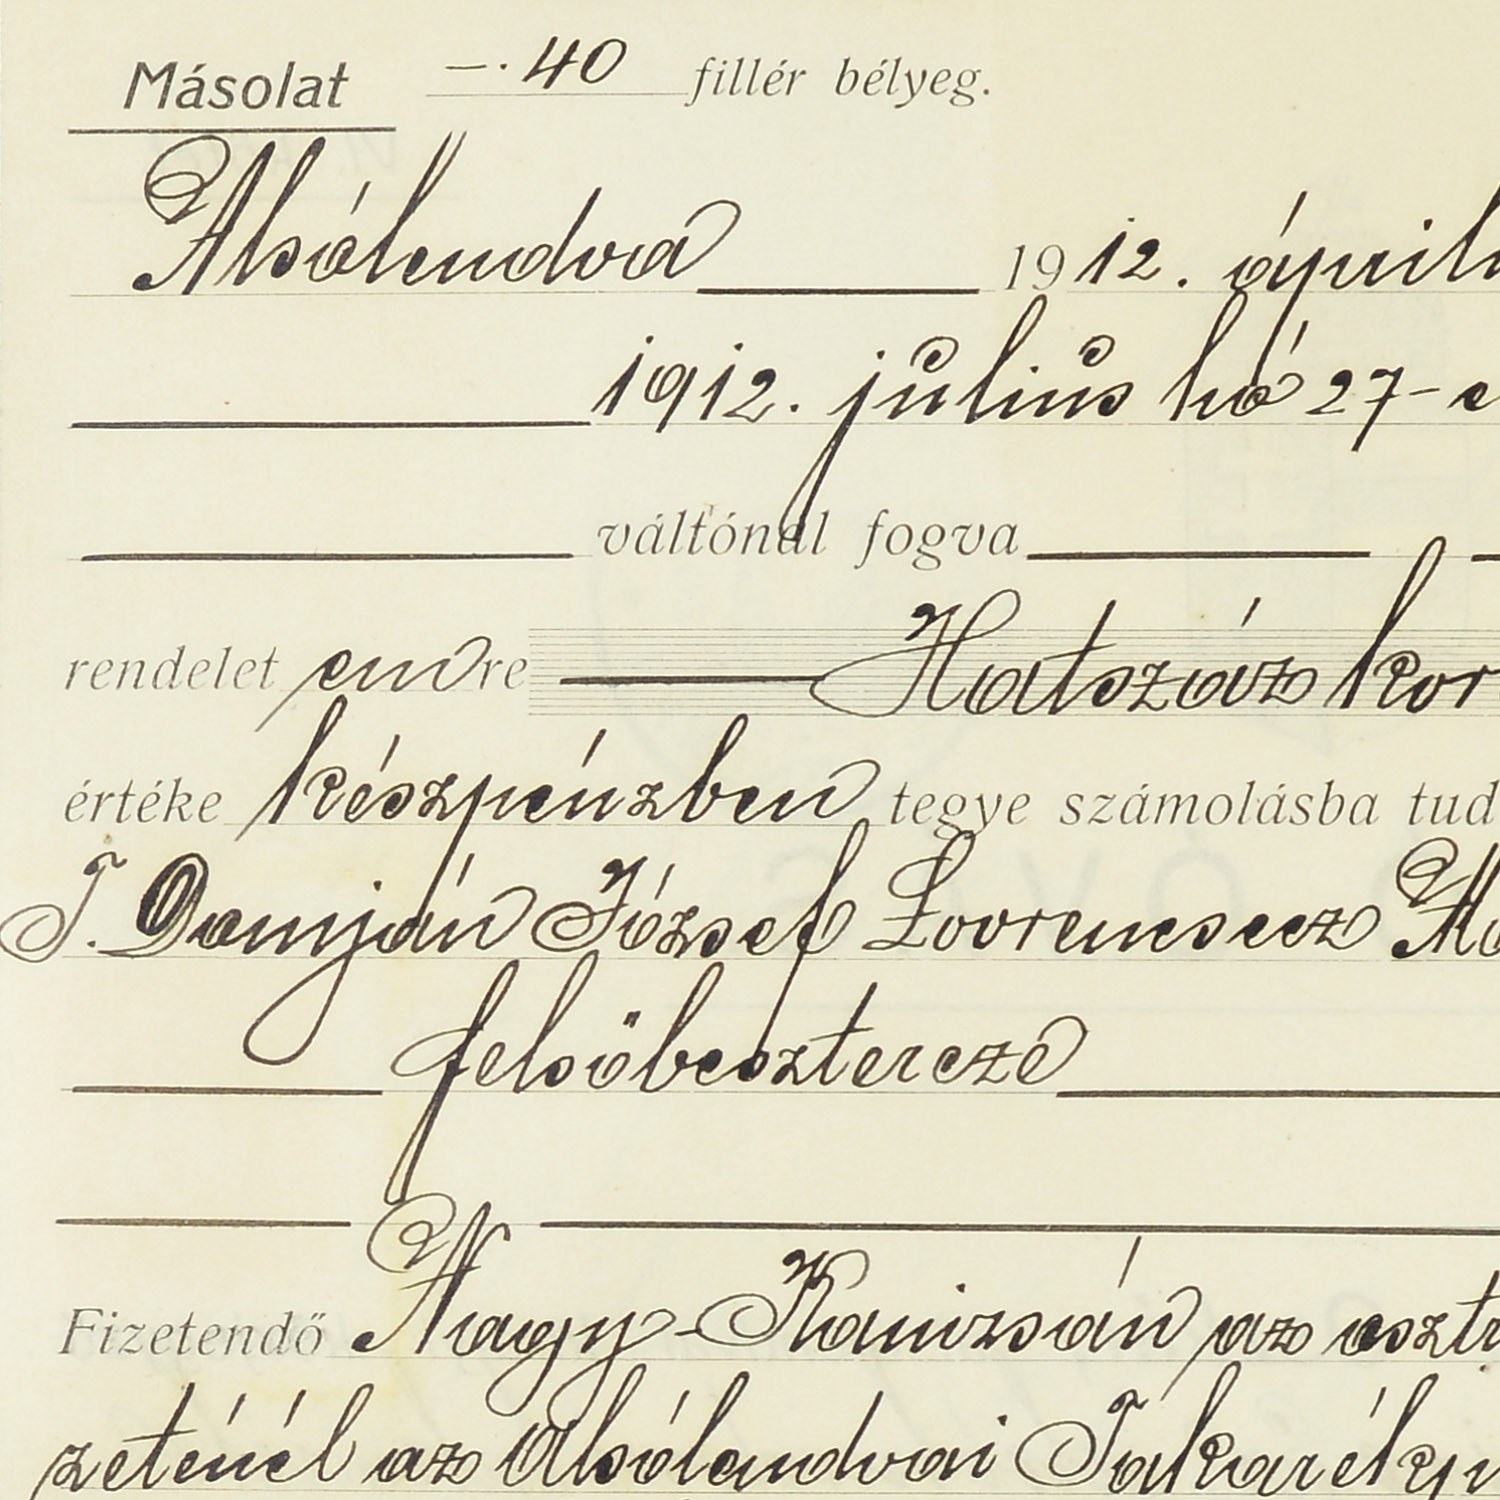 Másolat —·40 fillér bélyeg.
Alsólendva 1912. ápril
1912. július hó 27-e
váltónál fogva
rendelet emre Hatszáz kor
értéke készpénzben tegye számolásba tud
T. Damján József Lovrencsecz
felsőbeszterczé
Fizetendő Nagy-Kanizsán az osztr
zeténél az Alsólendvai Takarékp